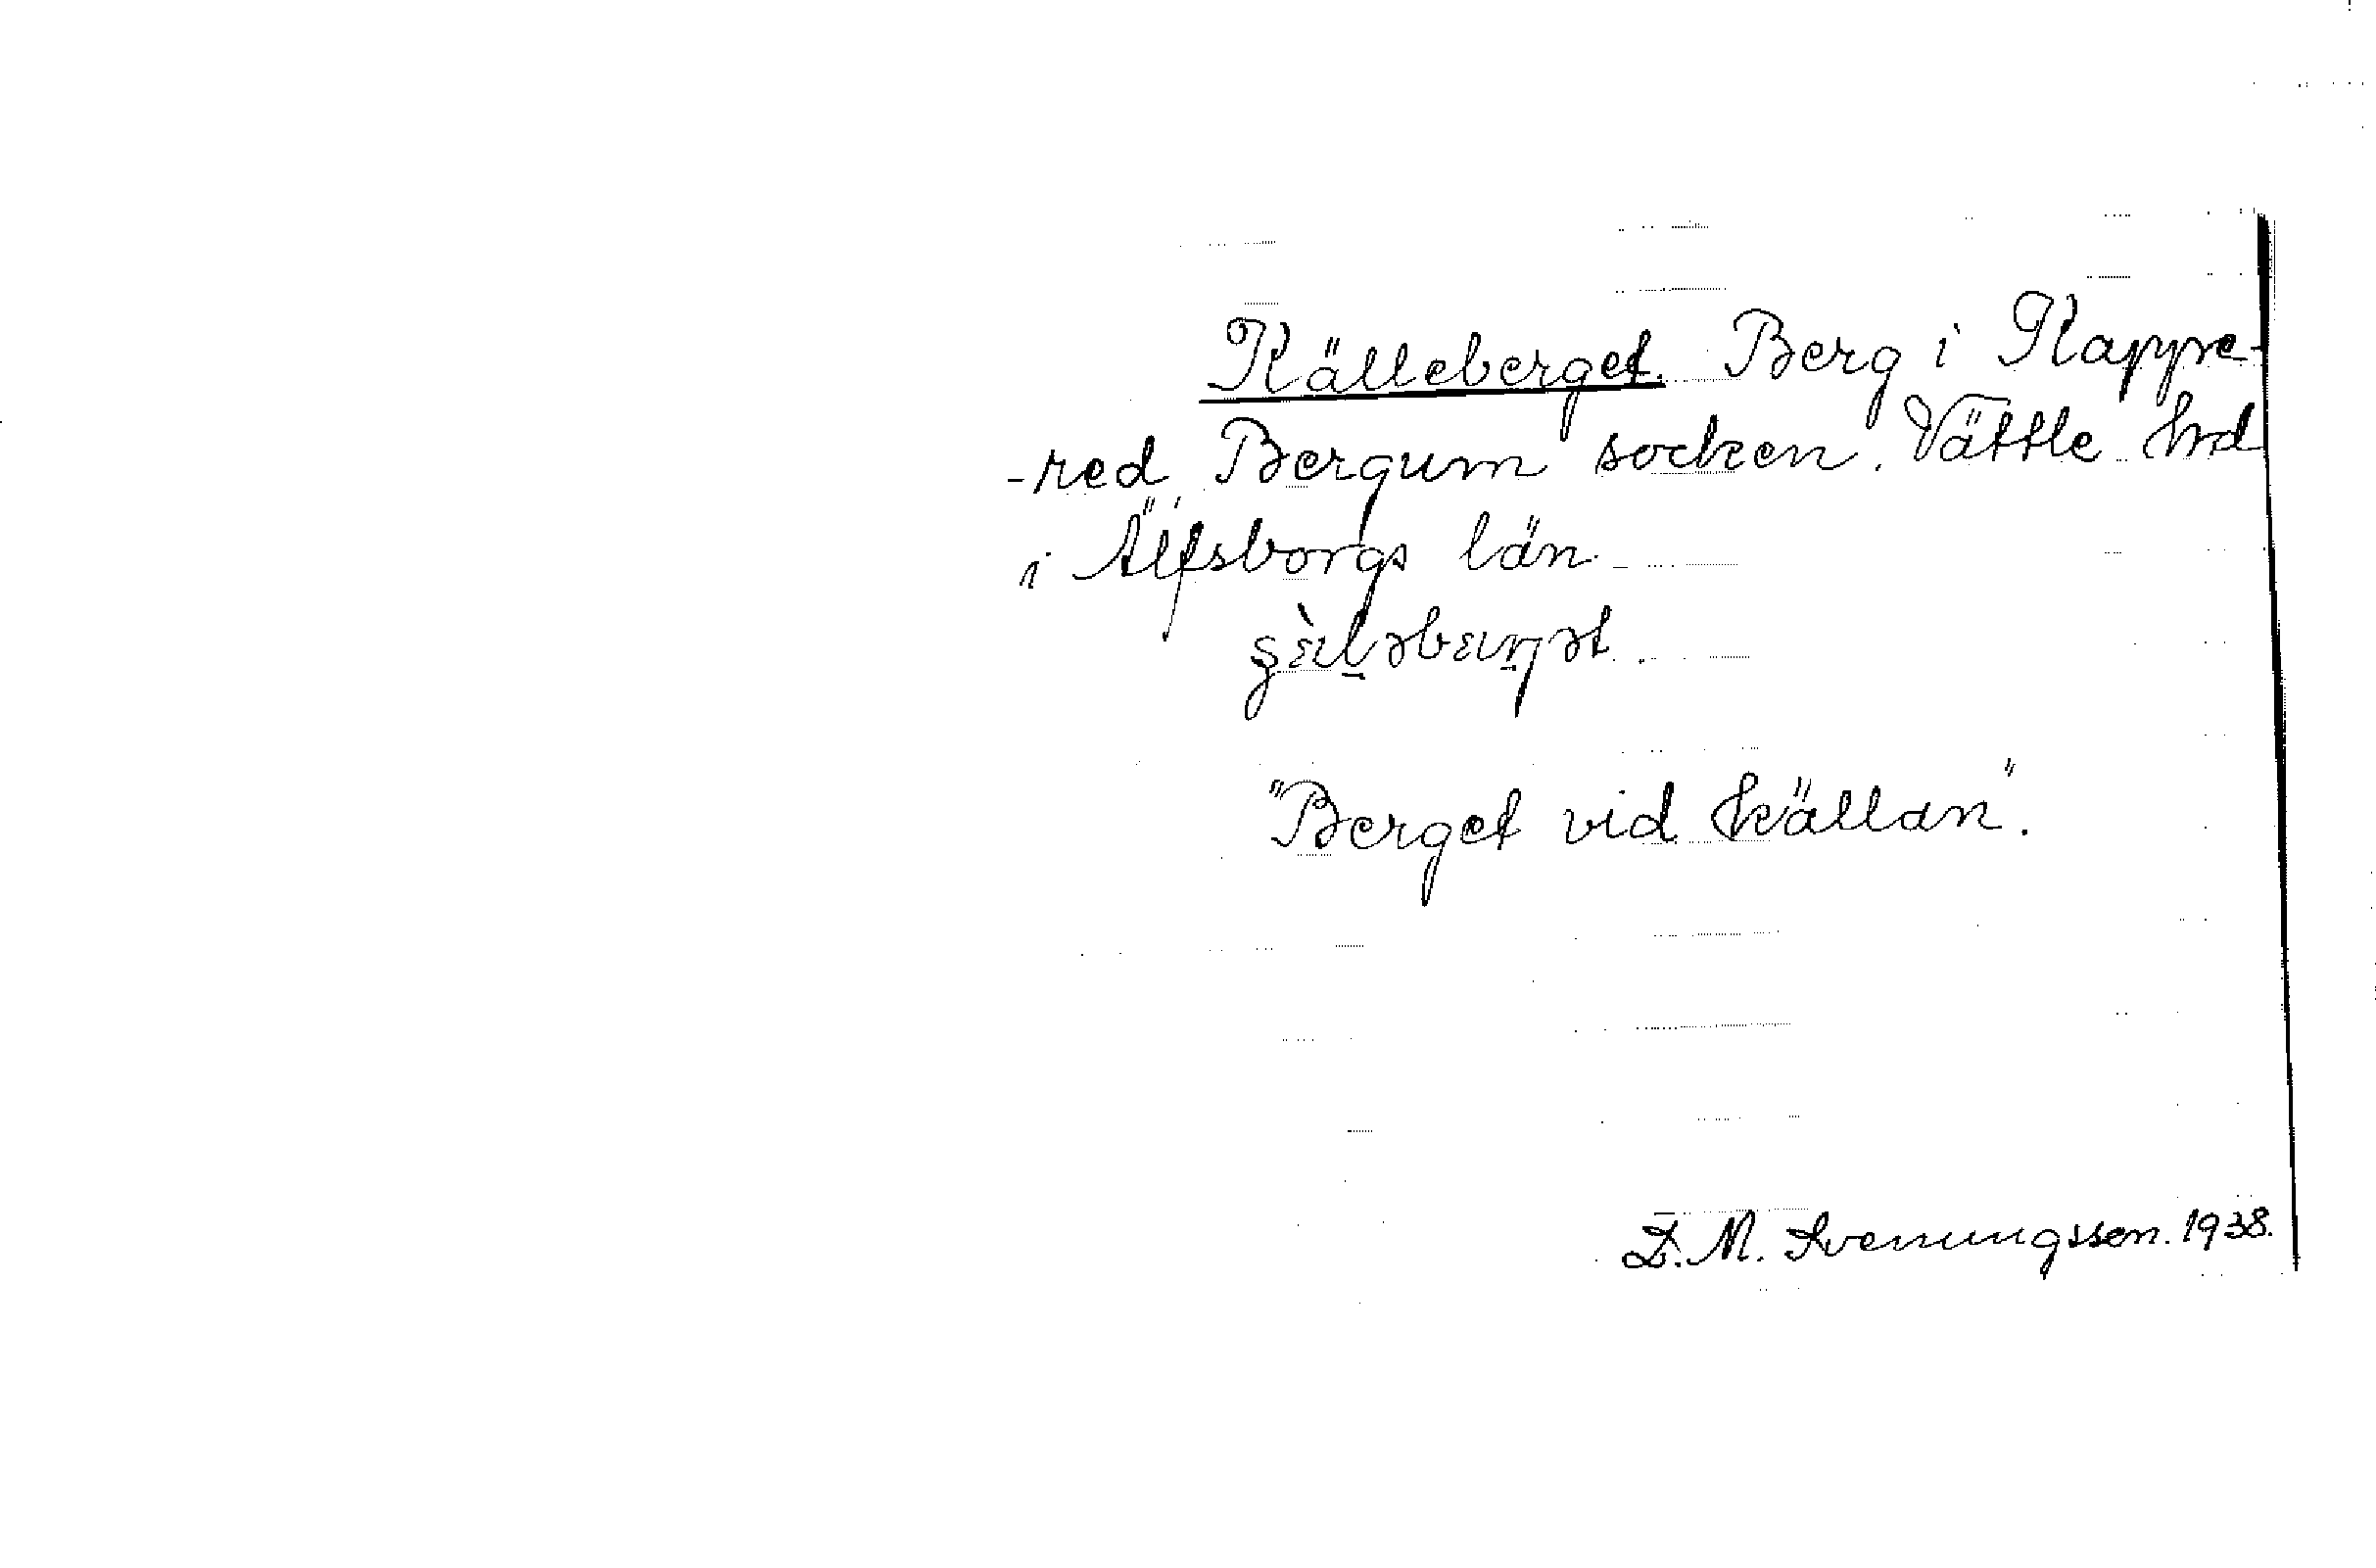 Källeberget. Berg i Kappre-
-red Bergum socken. Vättle hrd
i Älfsborgs län.
"Berget vid källan".
D. M. Svenungsson. 1938.